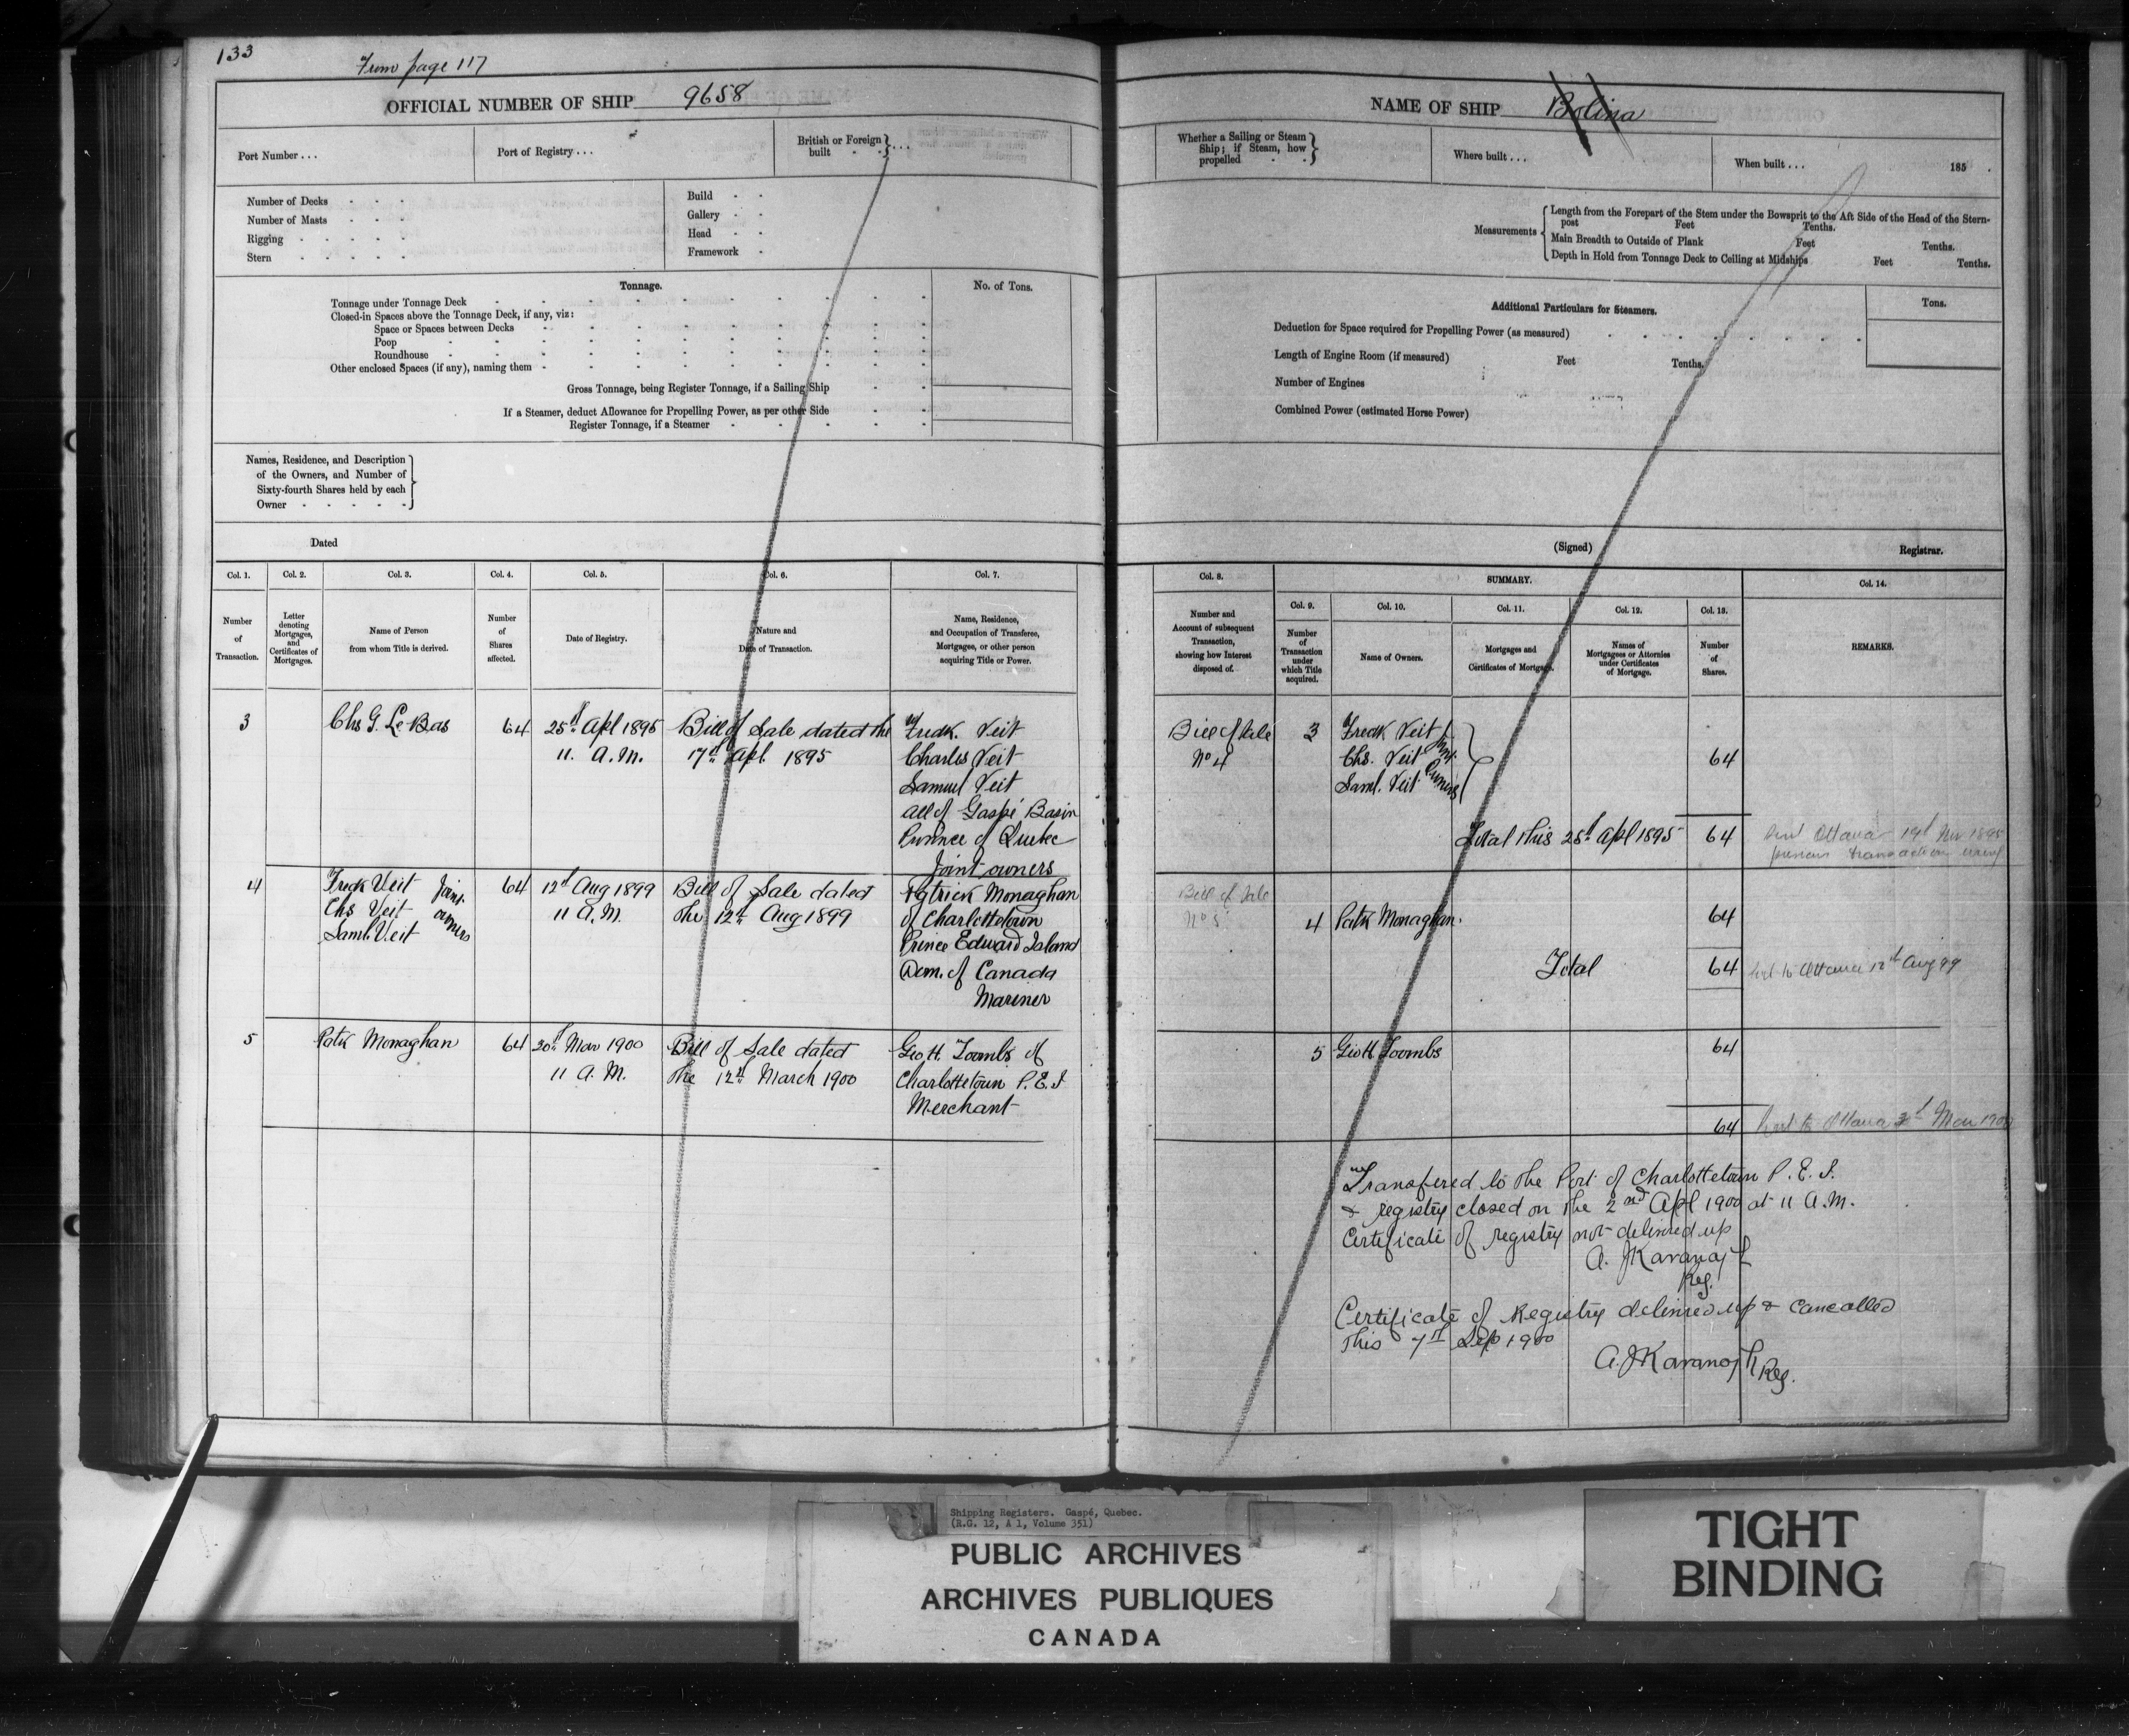 133
From page 117
OFFICIAL NUMBER OF SHIP 9658
Port Number . . .
Port of Registry . . .
British or Foreign built
Number of Decks
Number of Masts
Rigging
Stern
Build
Gallery
Head
Framework
Tonnage.
No. of Tons.
Tonnage under Tonnage Deck
Closed-in Spaces above the Tonnage Deck, if any, viz:
Space or Spaces between Decks
Poop
Roundhouse
Other enclosed Spaces (if any), naming them
Gross Tonnage, being Register Tonnage, if a Sailing Ship
If a Steamer, deduct Allowance for Propelling Power, as per other Side
Register Tonnage, if a Steamer
Names, Residence, and Description
of the Owners, and Number of
Sixty-fourth Shares held by each
Owner
Dated
Col. 1.
Number
of
Transaction.
Col. 2.
Letter
denoting
Mortgages,
and
Certificates of
Mortgages.
Col. 3.
Name of Person
from whom Title is derived.
Col. 4.
Number
of
Shares
affected.
Col. 5.
Date of Registry.
Col. 6.
Nature and
Date of Transaction.
Col. 7.
Name, Residence,
and Occupation of Transferee,
Mortgagee, or other person
acquiring Title or Power.
3
Chs G. Le Bas
64
25th Apl 1895
11. A.M.
Bill of Sale dated the
17th Apl. 1895
Fredk. Veit
Charles Veit
Samuel Veit
all of Gaspé Basin
Province of Quebec
Joint owners
4
Fredk Veit
Chs Veit
Saml. Veit
Joint
owners
64
12th Aug 1899
11 A.M.
Bill of Sale dated
the 12th Aug 1899
Patrick Monaghan
of Charlottetown
Prince Edward Island
Dom. of Canada
Mariner
5
Patk Monaghan
64
20th Mar 1900
11 A.M.
Bill of Sale dated
the 12th March 1900
Geo H. Toombs of
Charlottetown P.E.I
Merchant
NAME OF SHIP Bolina
Whether a Sailing or Steam
Ship; if Steam, how
propelled
Where built . . .
When built . . . 185 .
Measurements
Length from the Forepart of the Stem under the Bowsprit to the Aft Side of the Head of the Stern-
post Feet Tenths.
Main Breadth to Outside of Plank Feet Tenths.
Depth in Hold from Tonnage Deck to Ceiling at Midships Feet Tenths.
Additional Particulars for Steamers.
Tons.
Deduction for Space required for Propelling Power (as measured)
Length of Engine Room (if measured) Feet Tenths.
Number of Engines
Combined Power (estimated Horse Power)
(Signed) Registrar.
Col. 8.
Number and
Account of subsequent
Transaction,
showing how Interest
disposed of.
SUMMARY.
Col. 9.
Number
of
Transaction
under
which Title
acquired.
Col. 10.
Name of Owners.
Col. 11.
Mortgages and
Certificates of Mortgage.
Col. 12.
Names of
Mortgagees or Attornies
under Certificates
of Mortgage.
Col. 13.
Number
of
Shares.
Col. 14.
REMARKS.
Bill of Sale
No 4
3
Fredk Veit
Chs. Veit
Saml. Veit
Joint
Owners
64
Total this 25th Apl 1895
64
Ottawa 1895
previous transaction
Bill of Sale
No 5
4
Patk Monaghan.
64
Total
64
to Ottawa 12th Aug 99
5
Geo H Toombs
64
64
to Ottawa Mar 1900
Transfered to the Port of Charlottetown P.E.I.
& registry closed on the 2nd Apl 1900 at 11 A.M.
Certificate of registry not delivered up
A. J Kavanagh
Reg.
Certificate of Registry delivered up & cancelled
this 7th Sep 1900
A. J Kavanagh Reg.
Shipping Registers. Gaspé, Quebec.
(R.G. 12, A 1, Volume 351)
PUBLIC ARCHIVES
ARCHIVES PUBLIQUES
CANADA
TIGHT
BINDING